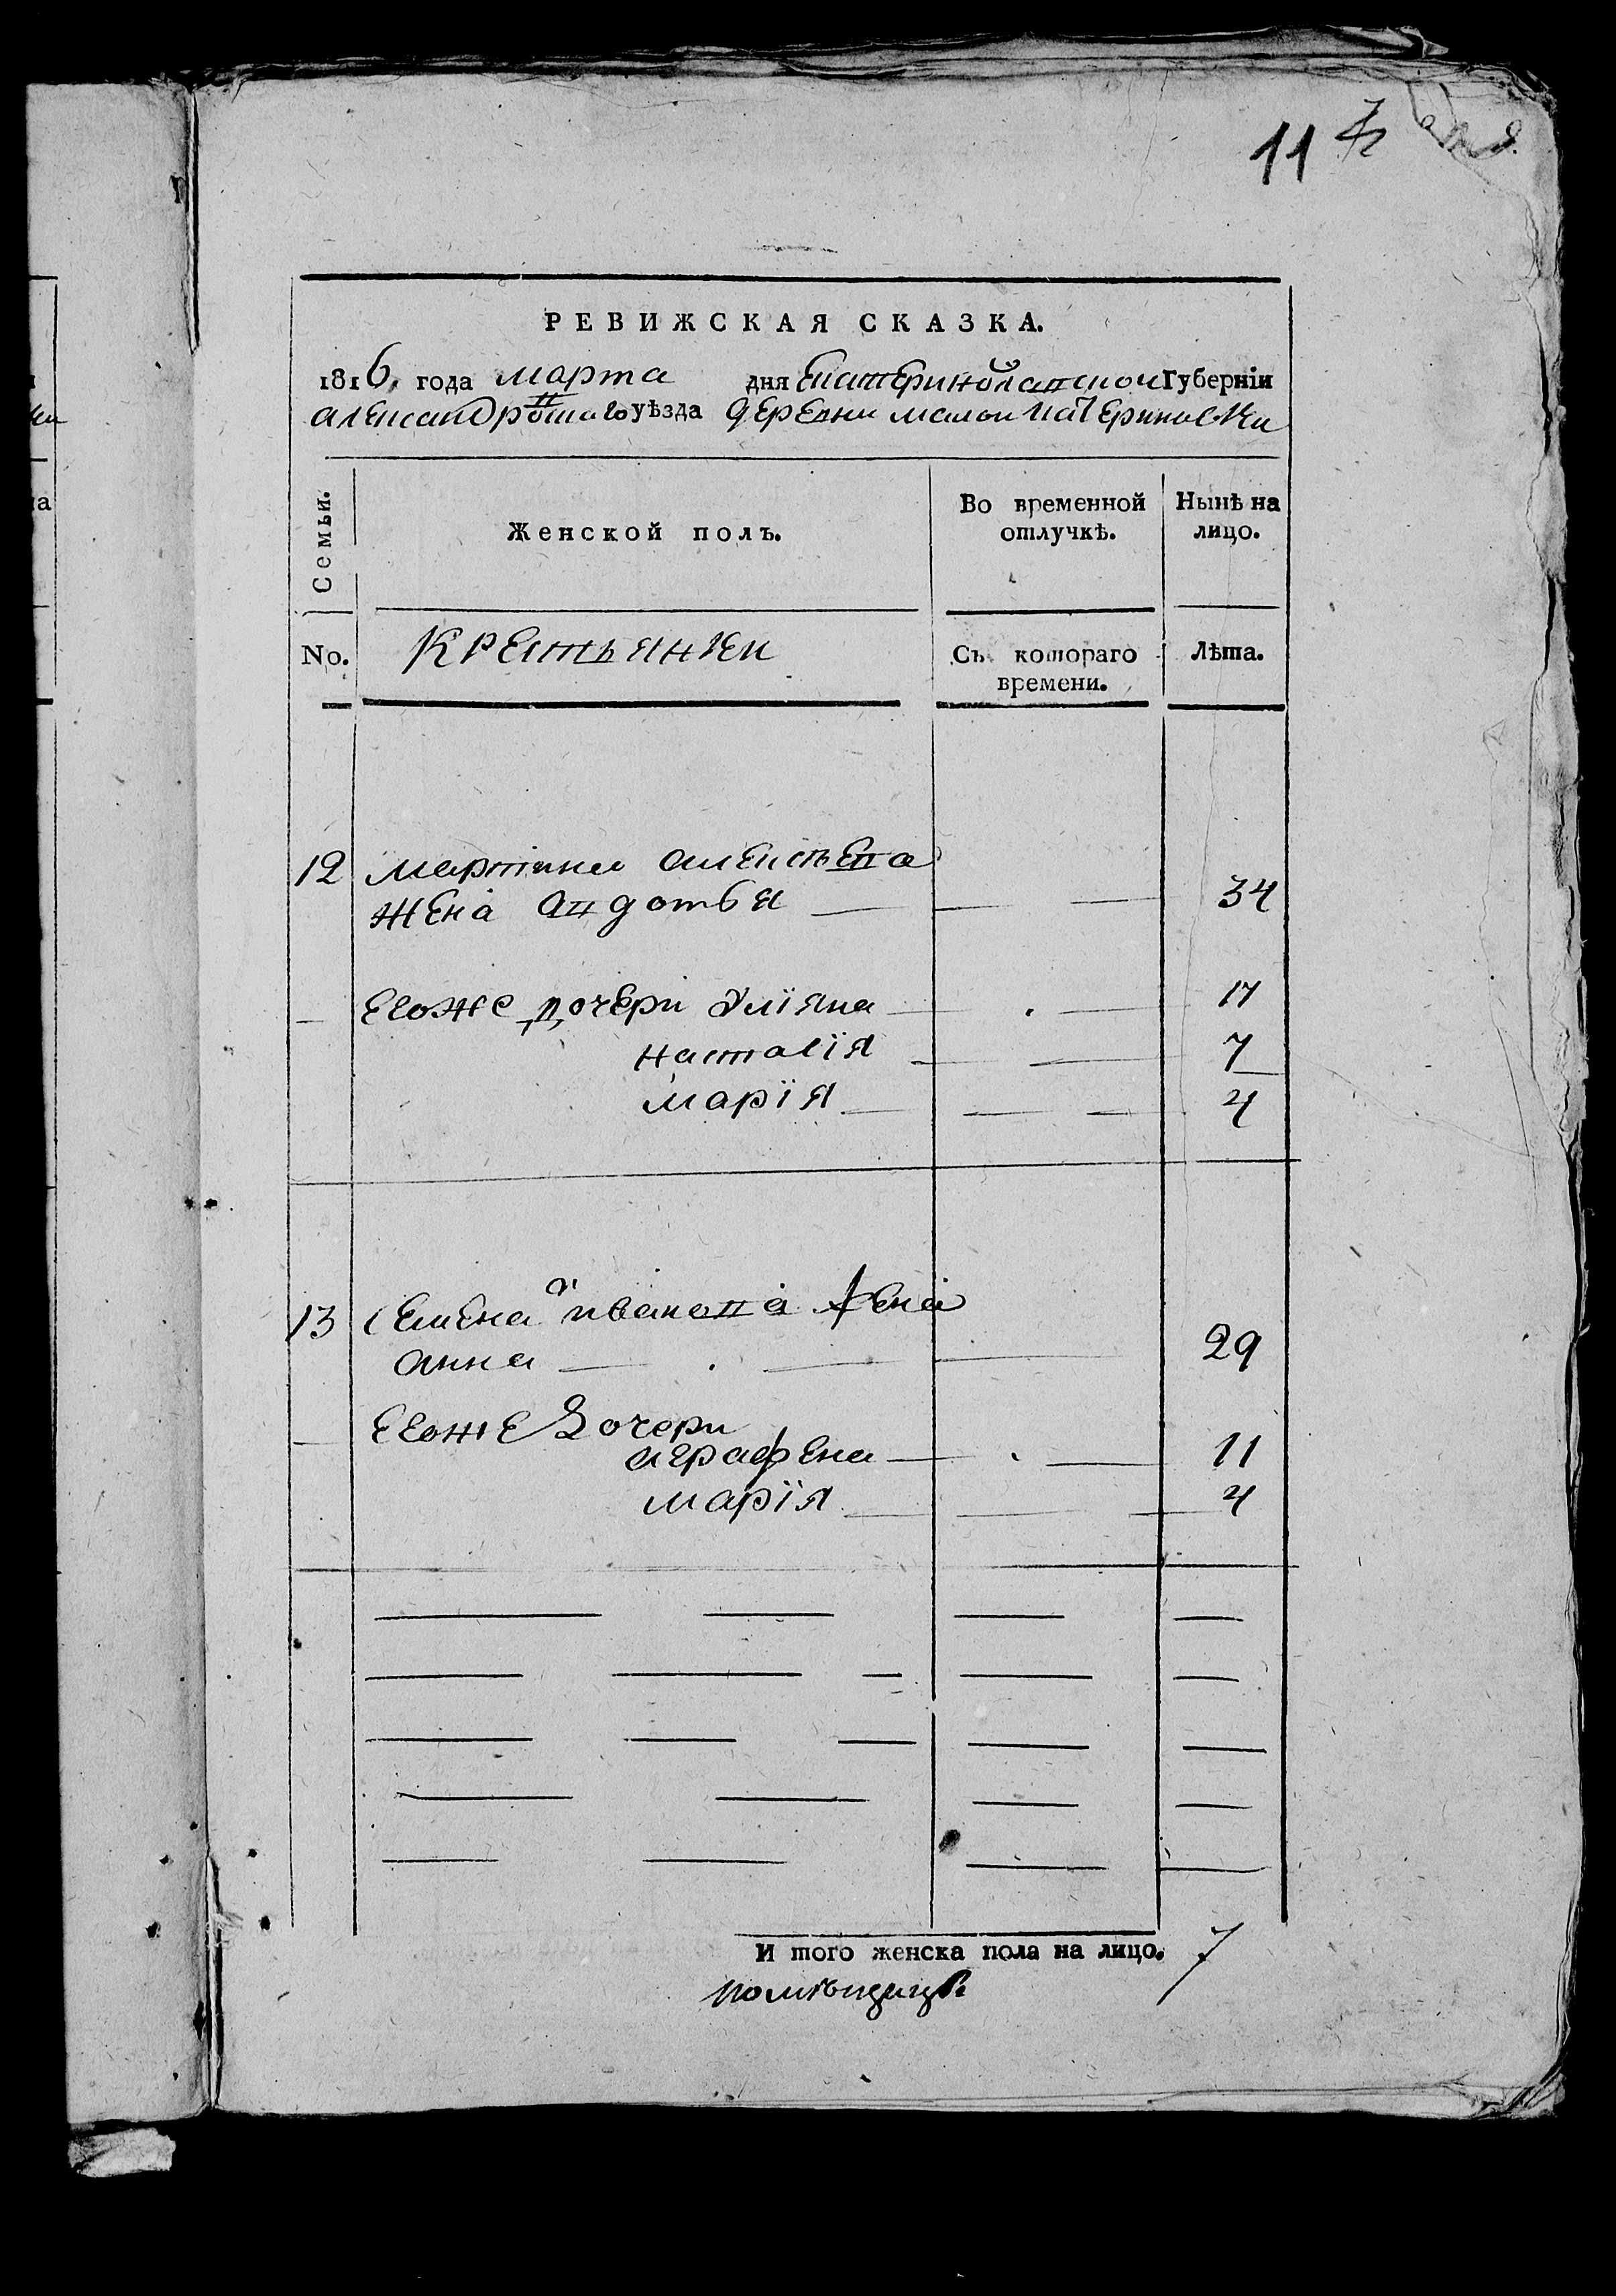 11
РЕВИЖСКАЯ СКАЗКА.
1816, года марта дня Екатеринославской Губерніи
александровшаго уѣзда деревни малой Катериновки
Семьи.
Женской полъ.
Во временной отлучкѣ.
Нынѣ на лицо.
No.
Крестьянки
Съ котораго времени.
Лѣта.
12 мартина алексѣева
жена авдотья 34
— егоже дочери Улїяна 17
наталїя 7
марїя 4
13 Семена иванова жена
анна 29
— егоже дочери
аграфена 11
марїя 4
И того женска пола на лицо. 7